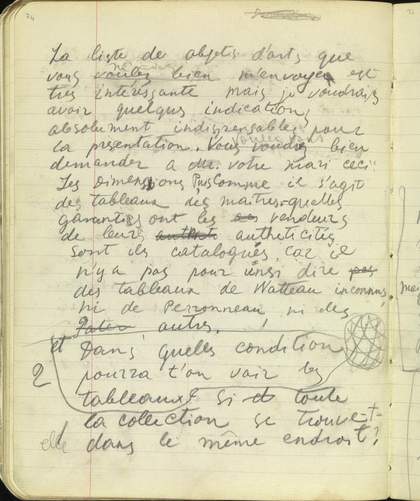 24
La liste de objets d'arts que
vous voulez bien m'envoyer est
très interssante mais je voudrais
avoir quelques indications
absolement indispensables pour
la présentation. Vous voudrez bien
demander a M. votre mari ceci
Les Dimensions Puscomme il s'agit
des tableaux des maitres quelles
garanties ont les vendeurs
de leurs autheticités
Sont ils catalogués car il
n'y a pas pour insi dire pas
des tableaux de Watteau inconnus,
ni de Perronneau, ni des
Pater autres.
et Dans quelles condition
2 pourra t'on voir les
tableaux? Si et toute
la collection se trouve-t-
elle dans le même endroit?